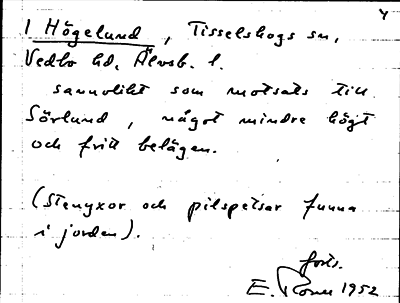 4
1 Högelund, Tisselskogs sn,
Vedbo hd, Älvsb. l.
sannolikt som motsats till
Sörlund, något mindre högt
och fritt belägen.
(Stenyxor och pilspetsar funna
i jorden).
forts.
E. 1952